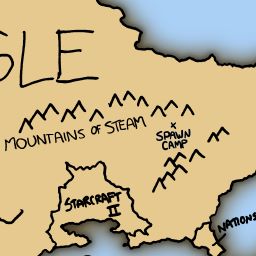 GLE
MOUNTAINS OF STEAM
SPAWN
CAMP
STARCRAFT
II
NATIONS